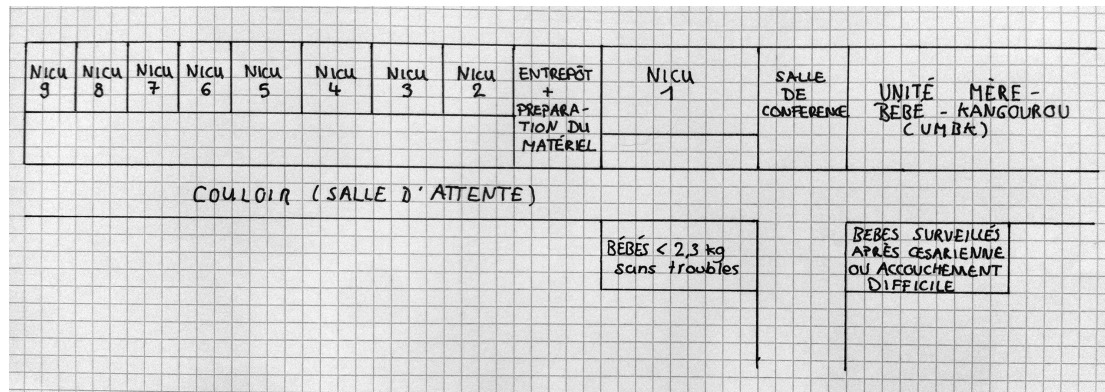 NICU
9
NICU
8
NICU
7
NICU
6
NICU
5
NICU
4
NICU
3
NICU
2
ENTREPÔT
+
PREPARA-
TION DU
MATÉRIEL
NICU
1
SALLE
DE
CONFERENCE
UNITÉ MÈRE-
BÉBÉ - KANGOUROU
(UMBK)
COULOIR (SALLE D'ATTENTE)
BÉBÉS < 2,3 kg
sans troubles
BEBES SURVEILLÉS
APRÈS CESARIENNE
OU ACCOUCHEMENT
DIFFICILE